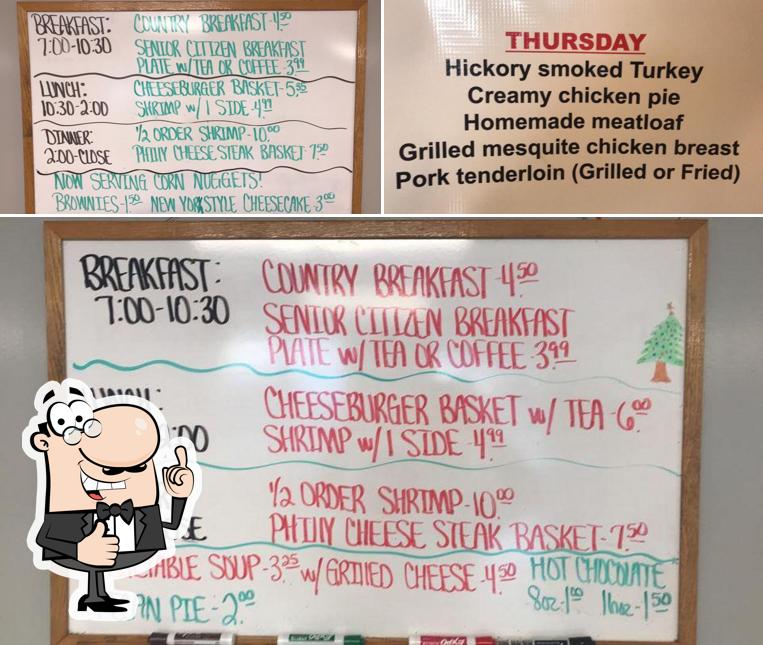 BREAKFAST: COUNTRY BREAKFAST-4.50
7:00-10:30 SENIOR CITIZEN BREAKFAST
PLATE w/TEA OR COFFEE-3.99
LUNCH: CHEESEBURGER BASKET-5.95
10:30-2:00 SHRIMP w/1 SIDE-4.99
DINNER: 1/2 ORDER SHRIMP-10.00
2:00-CLOSE PHILLY CHEESE STEAK BASKET-7.50
NOW SERVING CORN NUGGETS!
BROWNIES-1.50 NEW YORK STYLE CHEESECAKE-3.00
THURSDAY
Hickory smoked Turkey
Creamy chicken pie
Homemade meatloaf
Grilled mesquite chicken breast
Pork tenderloin (Grilled or Fried)
BREAKFAST: COUNTRY BREAKFAST-4.50
7:00-10:30 SENIOR CITIZEN BREAKFAST
PLATE w/TEA OR COFFEE-3.99
CHEESEBURGER BASKET w/ TEA-6.00
SHRIMP w/1 SIDE-4.99
1/2 ORDER SHRIMP-10.00
PHILLY CHEESE STEAK BASKET-7.50
SOUP-3.25 w/GRILLED CHEESE-4.50 HOT CHOCOLATE
PIE-2.00 8oz-1.00 16oz-1.50